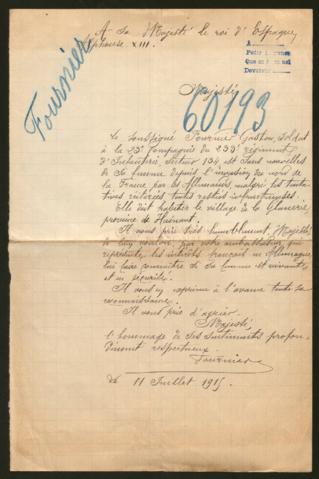 A Sa Majesté le roi d'Espagne
Alphonse XIII.
Fournier
Majesté
60193
Le soussigné Fournier Gaston, soldat
à la 23e Compagnie du 233e régiment
d'Infanterie, secteur 134 est sans nouvelles
de sa femme depuis l'invasion du nord de
la France par les Allemands, malgré les
toutes restées infructueuses.
Elle doit habiter le village de la Glanerie,
province de Hainaut.
Il vous prie très humblement, Majesté,
de bien vouloir, par votre ambassadeur, qui
représente les intérêts français en Allemagne,
lui faire connaître si sa femme est vivante,
et en sécurité.
Il vous exprime à l'avance toute sa
reconnaissance.
Il vous prie d'agréer
Majesté,
l'hommage de ses sentiments profon-
dément respectueux.
Fournier
11 Juillet 1915.